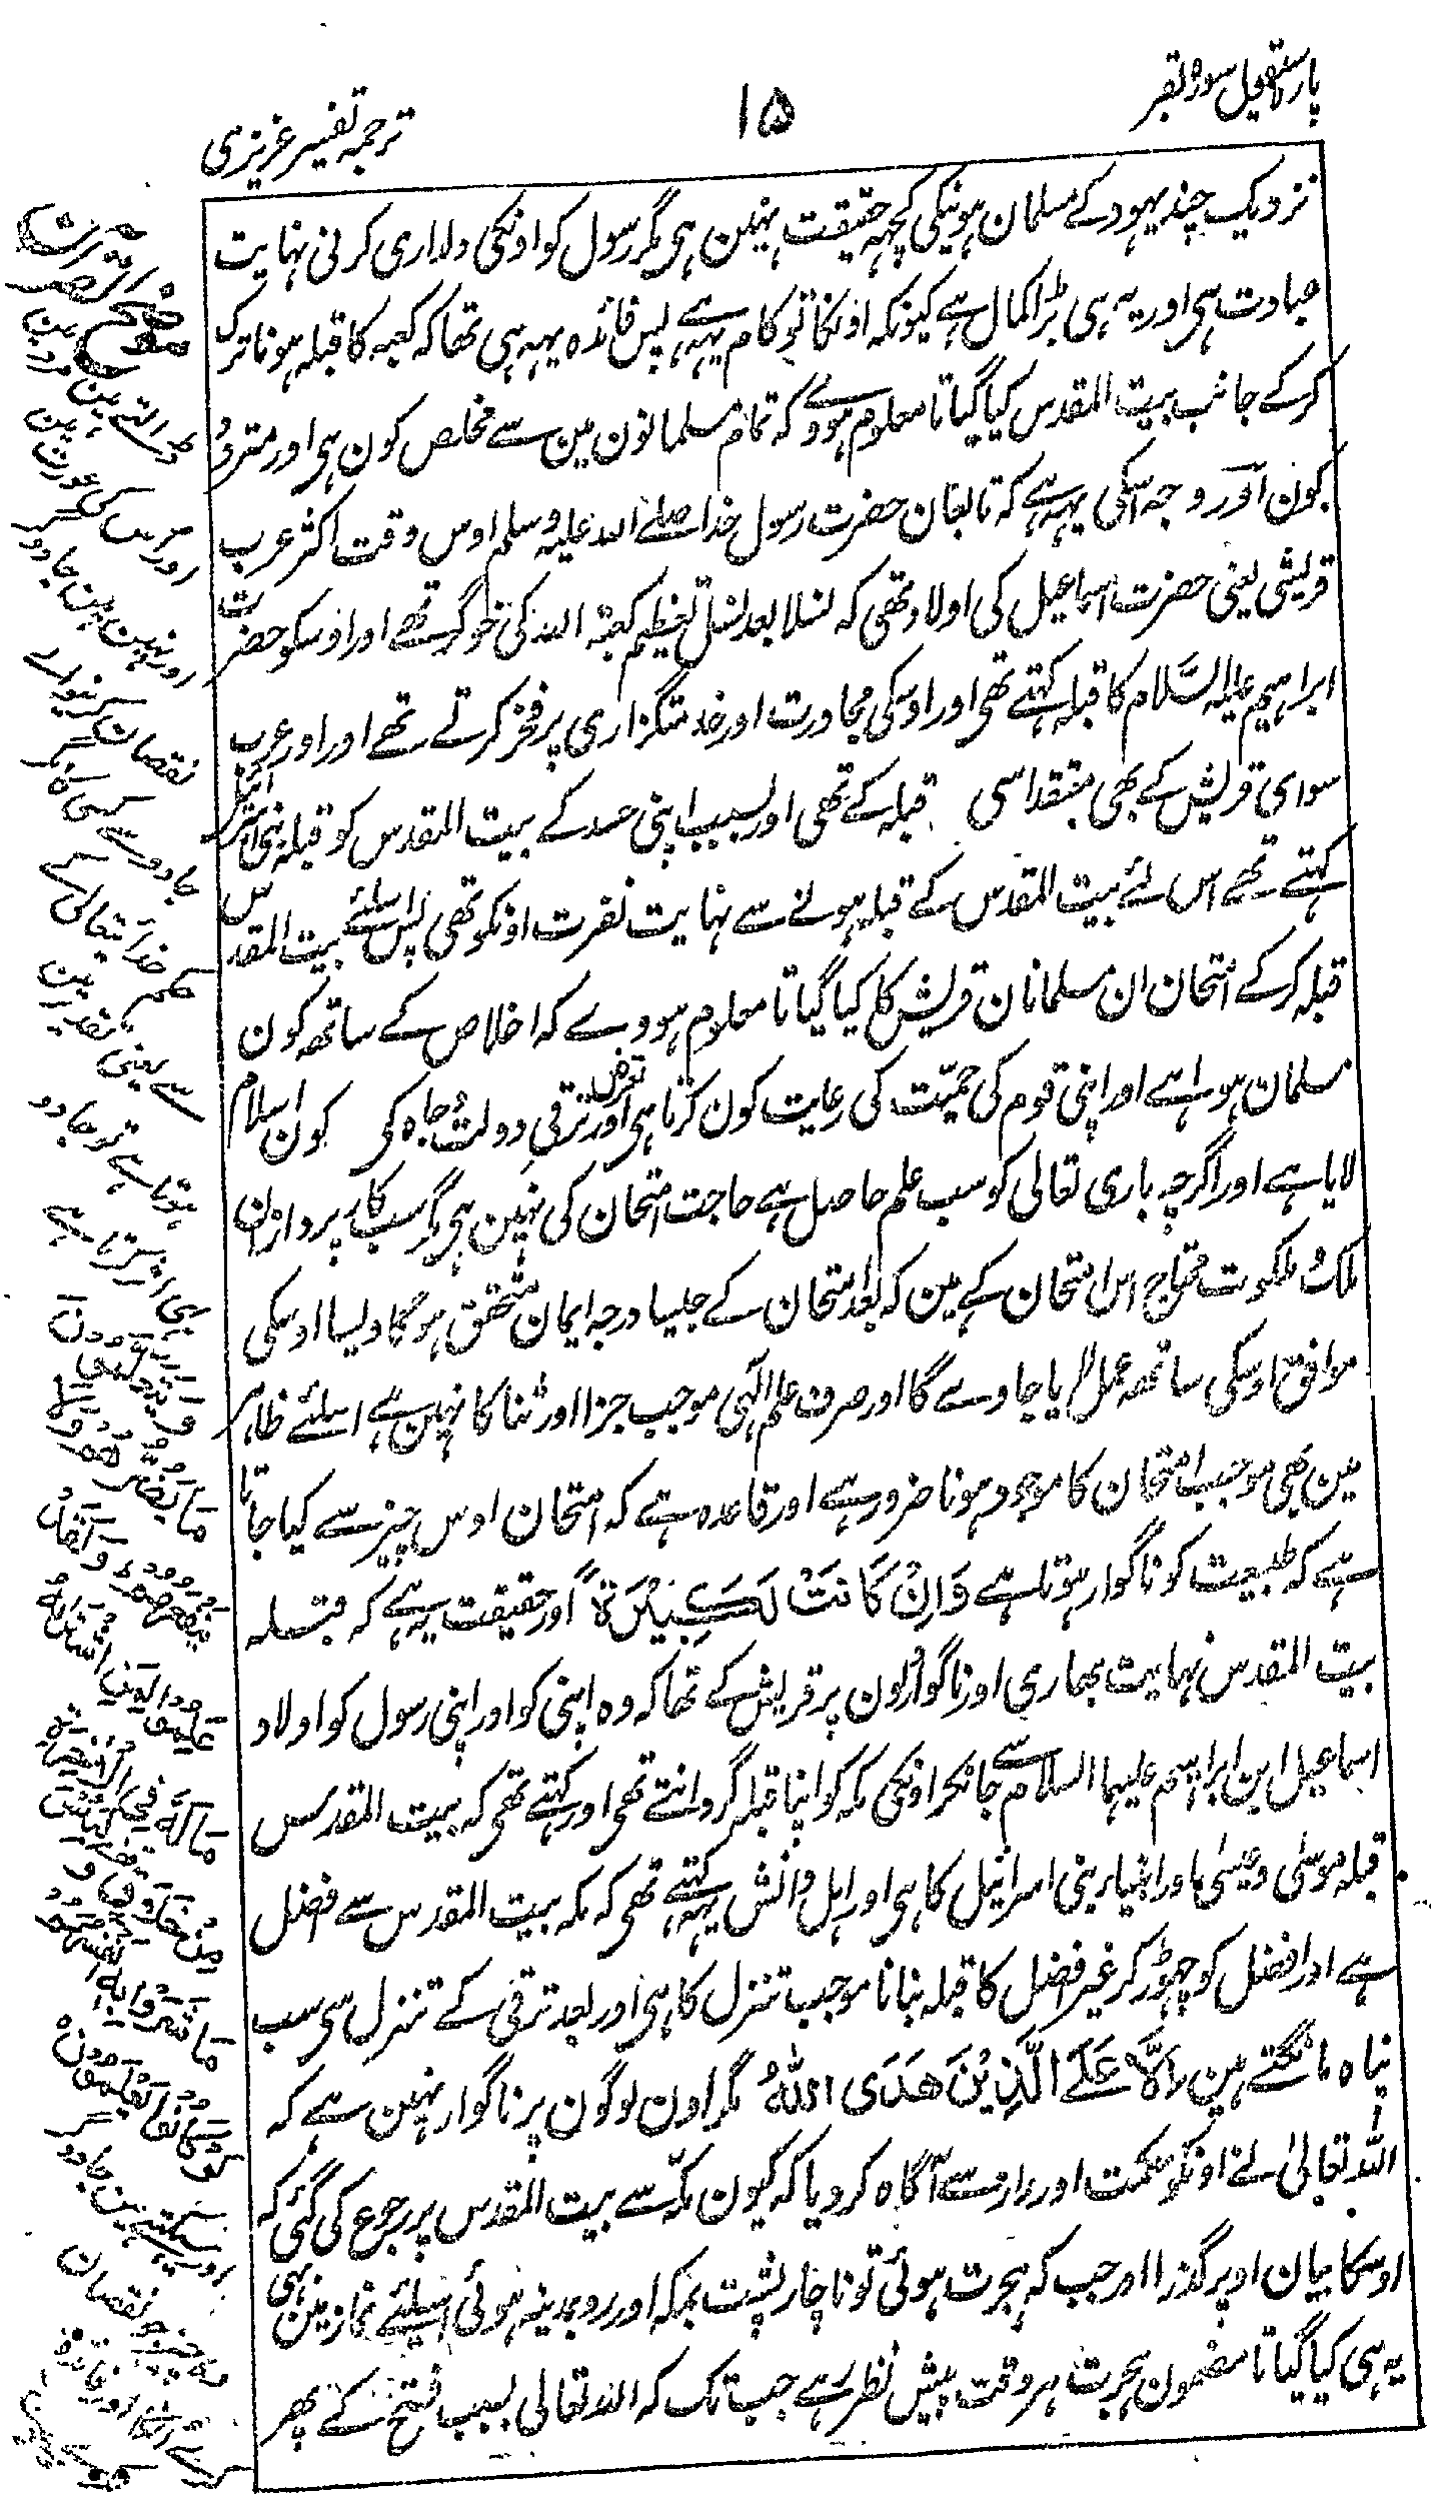 پارہ سیقول سورہ بقر
۱۵
ترجمہ تفسیر عزیزی
نزدیک چند یہود کے مسلمان ہونیکی کچہہ حقیقت نہین ہی مگر رسول کو اونکی دلداری کرنی نہایت
عبادت ہی اور یہ ہی بڑا کمال ہے کیونکہ اونکا تو کام یہہ ہے پس فائدہ یہہ ہی تھا کہ کعبہ کا قبلہ ہونا ترک
کرکے جانب بیت المقدس کیا گیا تا معلوم ہووے کہ تمام مسلمانون مین سے مخلص کون ہی اور متردد
کون اور وجہ اسکی یہہ ہے کہ تابعان حضرت رسول خدا صلے اللہ علیہ وسلم اوس وقت اکثر عرب
قریشی یعنی حضرت اسماعیل کی اولاد تھی کہ نسلا بعد نسل تعظیم کعبۃ اللہ کی خوگر تھے اور اوسکو حضرت
ابراہیم علیہ السَّلام کا قبلہ کہتے تھی اور اوسکی مجاورت اور خدمتگزاری پر فخر کرتے تھے اور اور عرب
سوای قریش کے بھی معتقد اسی قبلہ کے تھی اور بسبب اپنی حسد کے بیت المقدس کو قبلہ بنی اسرائیل
کہتے تھے اس لئے بیت المقدس کے قبلہ ہونے سے نہایت نفرت اونکو تھی پس اسلئے بیت المقدس
قبلہ کرکے امتحان ان مسلمانان قریش کا کیا گیا تا معلوم ہووے کہ اخلاص کے ساتھ کون
مسلمان ہوا ہے اور اپنی قوم کی حمیّت کی رعایت کون کرتا ہی اور بغرض ترقی دولت و جاہ کی کون اسلام
لایا ہے اور اگرچہ باری تعالی کو سب علم حاصل ہے حاجت امتحان کی نہین ہی مگر سب کار پردازان
ملک و ملکوت محتاج اس امتحان کے ہین کہ بعد امتحان کے جیسا درجہ ایمان متحقق ہوگا ویسا اوسکی
موافق اوسکی ساتھ عمل کیا جاوے گا اور صرف علم الٓہی موجب جزا اور ثنا کا نہین ہے اسلئے ظاہر
مین بھی موجب امتحان کا موجود ہونا ضرور ہے اور قاعدہ ہے کہ امتحان اوس چیز سے کیا جاتا
ہے کہ طبیعت کو ناگوار ہوتا ہے وَاِنْ كَانَتْ لَكَبِيْرَةً اور حقیقت یہ ہے کہ قبلہ
بیت المقدس نہایت بھاری اور ناگوار اون پر قریش کے تھا کہ وہ اپنی کو اور اپنی رسول کو اولاد
اسماعیل ابن ابراہیم علیہما السلام سے جانکر اونکی مکہ کو اپنا قبلہ گردانتے تھی اور کہتے تھی کہ بیت المقدس
قبلہ موسٰی و عیسٰی اور انبیاء بنی اسرائیل کا ہی اور اہل دانش یہہ کہتے تھی کہ مکہ بیت المقدس سے افضل
ہے اور افضل کو چہوڑکر غیر افضل کا قبلہ بنانا موجب تنزل کا ہی اور بعد ترقی کے تنزل سی سب
پناہ مانگتے ہین اِلَّا عَلَے الَّذِيْنَ هَدَى اللّٰهُ مگر اون لوگون پر ناگوار نہین ہے کہ
اللہ تعالیٰ نے اونکو حکمت اور راز سے آگاہ کردیا کہ کیون مکہ سے بیت المقدس پر رجوع کی گئی کہ
اوسکا بیان اوپر گذرا اور جب کہ ہجرت ہوئی تو ناچار پشت بمکہ اور رو بمدینہ ہوئی اسیلئے نماز مین بھی
یہ ہی کیا گیا تا مضمون ہجرت ہر وقت پیش نظر رہے جب تک کہ اللہ تعالی بسبب فتح کے پھر
نقصان کرنیوالے
جادو سے کسی کا مگر
حکم خدائتعالی کے
سے یعنی تقدیر مین
ہوتا ہے تو جادو
وَيَتَعَلَّمُوْنَ
مَا يَضُرُّهُمْ وَلَا
يَنْفَعُهُمْ وَلَقَدْ
عَلِمُوْا لَمَنِ اشْتَرٰىهُ
مَا لَهُ فِي الْاٰخِرَةِ
مِنْ خَلَاقٍ وَلَبِئْسَ
مَا شَرَوْا بِهٖ اَنْفُسَهُمْ
لَوْ كَانُوْا يَعْلَمُوْنَ